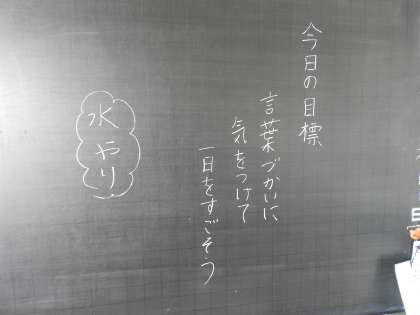 今日の目標
言葉づかいに
気をつけて
一日をすごそう
水やり